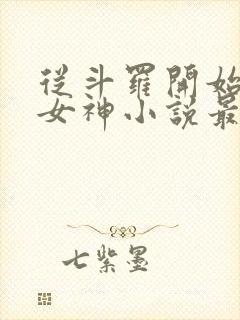 從斗羅開始
女神小說最
七紫墨